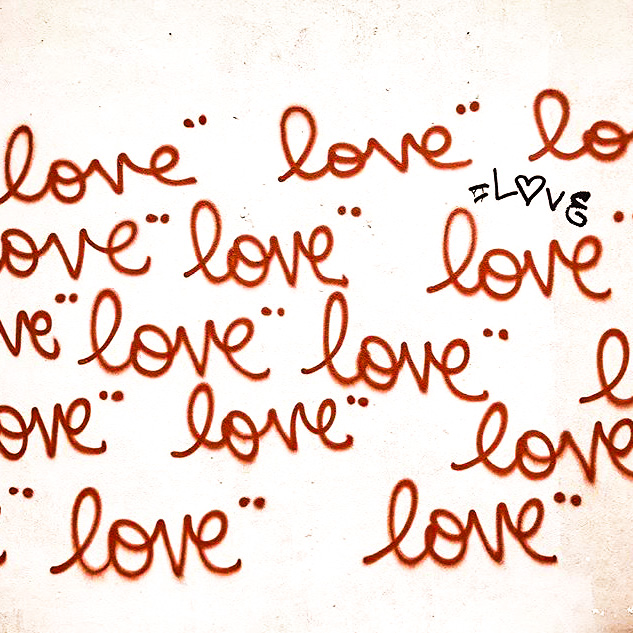 love¨ love¨ lo
#L♡VE
ove¨ love¨ love¨
ve¨ love¨ love¨ l
ove¨ love¨ love
¨ love¨ love¨